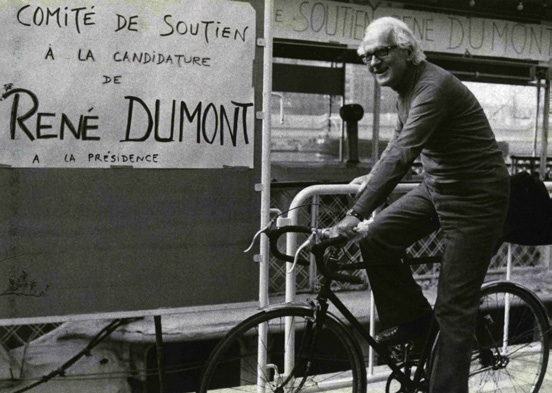 COMITÉ DE SOUTIEN
À LA CANDIDATURE
DE
RENÉ DUMONT
A LA PRÉSIDENCE
E SOUTIEN RENÉ DUMONT